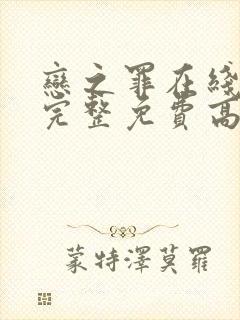 戀之罪在綫
完整免費高
蒙特澤莫羅